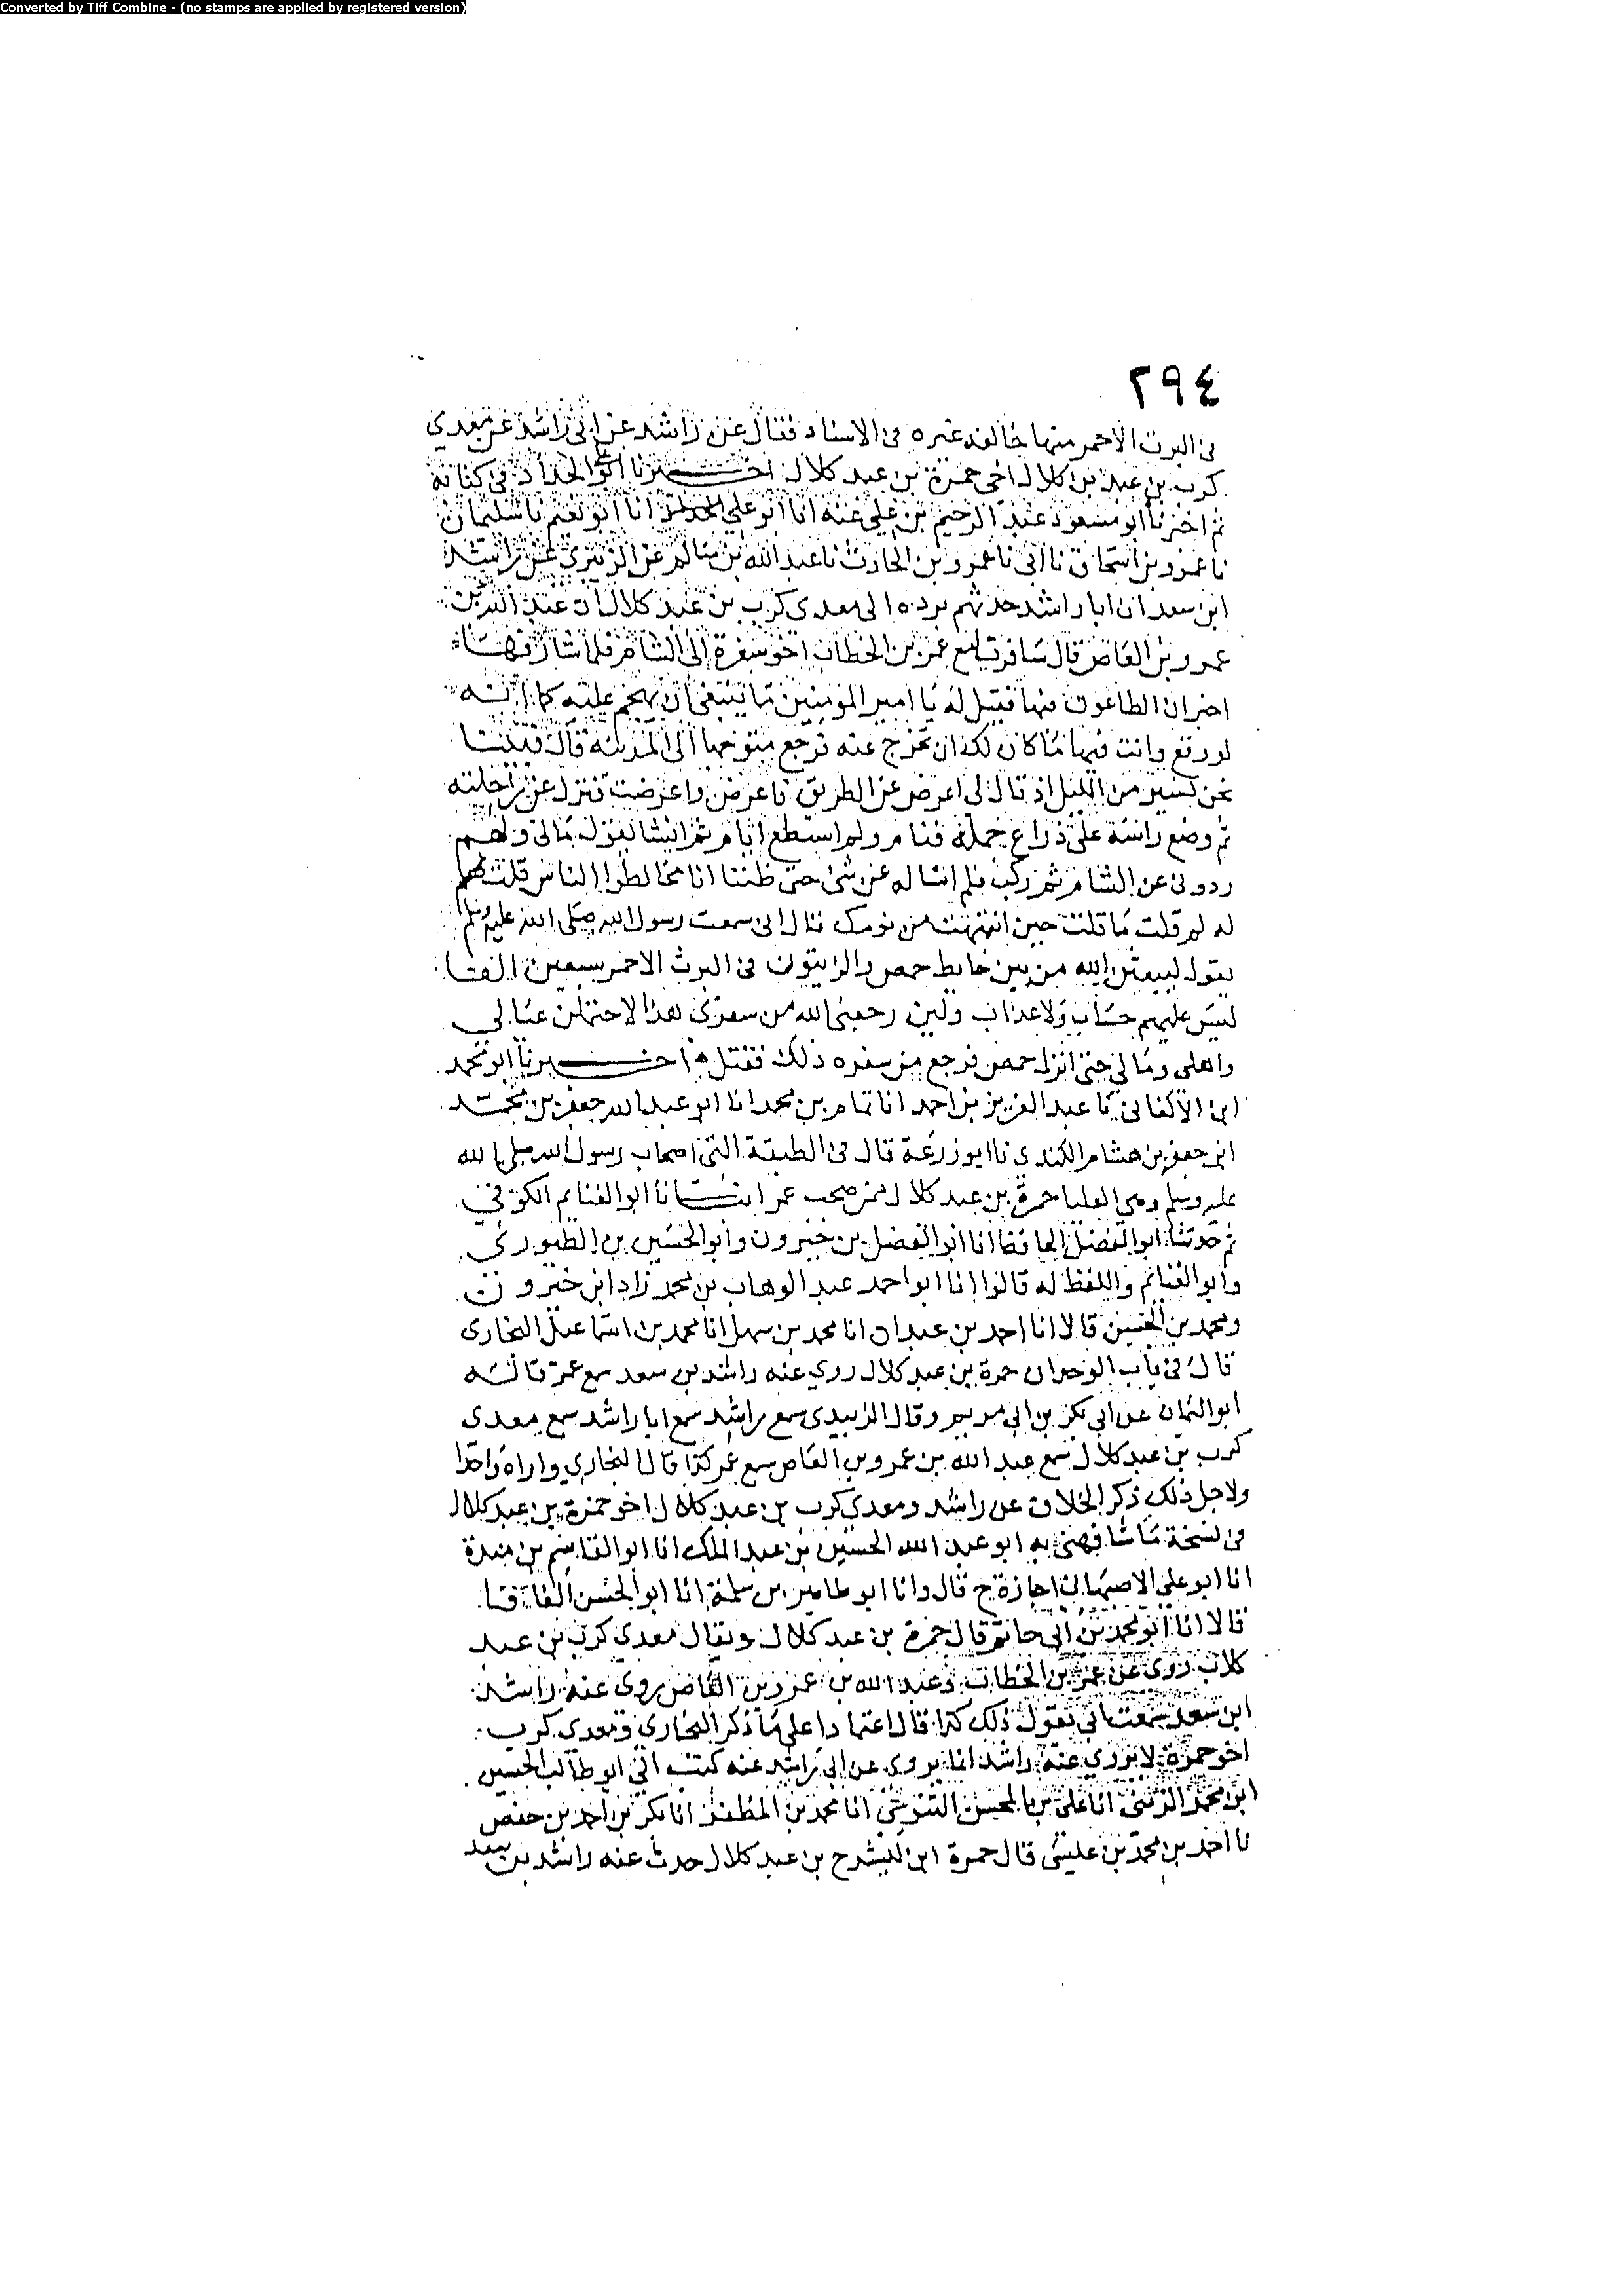 Converted by Tiff Combine - (no stamps are applied by registered version)
٢٩٤
في البرث الاحمر منها خالفه غيره في الاسناد فقال عن راشد عن ابي راشد عن معدي
كرب بن عبد بن كلال اخي حمزة بن عبد كلال اخبرنا ابو علي الحداد في كتابه
ثم اخبرنا ابو مسعود عبد الرحيم بن علي عنه انا ابو علي الحداد انا ابو نعيم نا سليمان
نا عمرو بن اسحاق نا ابي نا عمرو بن الحارث نا عبد الله بن سالم عن الزبيدي عن راشد
ابن سعد ان ابا راشد حدثهم برده الى معدي كرب بن عبد كلال ان عبد الله بن
عمرو بن العاص قال سافرت مع عمر بن الخطاب اخر سفرة الى الشام فلما شارفها
اخبر ان الطاعون فيها فقيل له يا امير المومنين ما ينبغي ان يهجم عليه كما انه
لو وقع وانت فيها ما كان لك ان تخرج عنه فرجع متوجها الى المدينة قال فبينا
نحن نسير من الليل اذ قال لي اعرض عن الطريق فاعرض واعرضت فنزل عن راحلته
ثم وضع راسه على ذراع جمله فنام ولم استطع انام ثم انشا يقول مالي ولهم
ردوني عن الشام ثم ركب فلم اساله عن شي حتى ظننا انا مخالطوا الناس قلت
له لم قلت ما قلت حين انتبهت من نومك قال اني سمعت رسول الله صلى الله عليه وسلم
يقول ليبعثن الله من بين حايط حمص والزيتون في البرث الاحمر سبعين الفا
ليس عليهم حساب ولا عذاب ولين رجعني الله من سفري هذا لاحتملن عيالي
واهلي ومالي حتى انزل حمص فرجع من سفره ذلك فقتل اخبرنا ابو محمد
ابن الاكفاني نا عبد العزيز بن احمد انا تمام بن محمد انا ابو عبد الله جعفر بن محمد
ابن جعفر بن هشام الكندي نا ابو زرعة قال في الطبقة التي اصحاب رسول الله صلى الله
عليه وسلم وهي العليا حمزة بن عبد كلال ممن صحب عمر انبانا ابو الغنايم الكوفي
ثم حدثنا ابو الفضل الحافظ انا ابو الفضل بن خيرون وابو الحسين بن الطيوري
وابو الغنائم واللفظ له قالوا انا ابو احمد عبد الوهاب بن محمد زاد ابن خيرون
ومحمد بن الحسين قالا انا احمد بن عبدان انا محمد بن سهل انا محمد بن اسماعيل البخاري
قال في باب الوحدان حمرة بن عبد كلال روي عنه راشد بن سعد سمع عمر قاله
ابو اليمان عن ابي بكر بن ابي مريم وقال الزبيدي سمع راشد سمع ابا راشد سمع معدي
كرب بن عبد كلال سمع عبد الله بن عمرو بن العاص سمع عمر كذا قال البخاري واراه واحدا
ولاجل ذلك ذكر الخلاف عن راشد ومعدي كرب بن عبد كلال اخو حمزة بن عبد كلال
في نسخة ما شافهني به ابو عبد الله الحسين بن عبد الملك انا ابو القاسم بن مندة
انا ابو علي الاصبهاني اجازة ح قال وانا ابو طاهر بن سلمة انا ابو الحسن الفافا
قالا انا ابو محمد بن ابي حاتم قال حمزة بن عبد كلال ويقال معدي كرب بن عبد
كلال روى عن عمر بن الخطاب وعبد الله بن عمرو بن العاص روى عنه راشد
ابن سعد سمعت ابي يقول ذلك كذا قال اعتمادا على ما ذكر البخاري ومعدي كرب
اخو حمزة لا يروي عنه راشد انما يروى عن ابي راشد عنه كتب الي ابو طالب الحسين
ابن محمد الزينبي انا علي بن المحسن التنوخي انا محمد بن المظفر انا بكر بن احمد بن حفص
نا احمد بن محمد بن عيسى قال حمرة ابن ليشرح بن عبد كلال حدث عنه راشد بن سعد